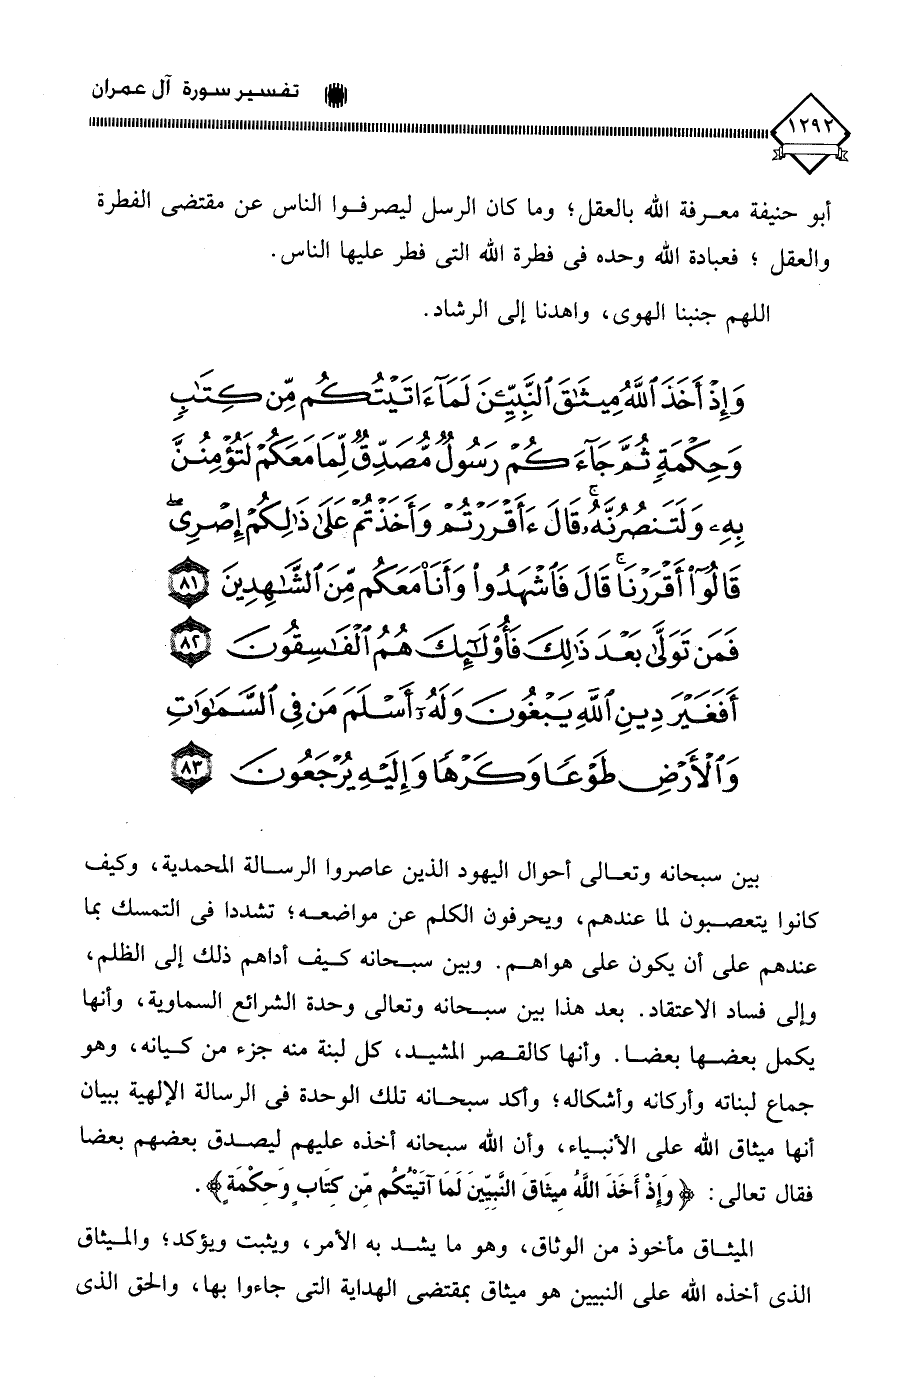 تفسير سورة آل عمران
١٢٩٢
أبو حنيفة معرفة الله بالعقل؛ وما كان الرسل ليصرفوا الناس عن مقتضى الفطرة
والعقل ؛ فعبادة الله وحده فى فطرة الله التى فطر عليها الناس.
اللهم جنبنا الهوى، واهدنا إلى الرشاد.
وَإِذْ أَخَذَ ٱللَّهُ مِيثَٰقَ ٱلنَّبِيِّـۧنَ لَمَآ ءَاتَيْتُكُم مِّن كِتَٰبٍ
وَحِكْمَةٍ ثُمَّ جَآءَكُمْ رَسُولٌ مُّصَدِّقٌ لِّمَا مَعَكُمْ لَتُؤْمِنُنَّ
بِهِۦ وَلَتَنصُرُنَّهُۥ ۚ قَالَ ءَأَقْرَرْتُمْ وَأَخَذْتُمْ عَلَىٰ ذَٰلِكُمْ إِصْرِى ۖ
قَالُوٓا۟ أَقْرَرْنَا ۚ قَالَ فَٱشْهَدُوا۟ وَأَنَا۠ مَعَكُم مِّنَ ٱلشَّٰهِدِينَ ٨١
فَمَن تَوَلَّىٰ بَعْدَ ذَٰلِكَ فَأُو۟لَٰٓئِكَ هُمُ ٱلْفَٰسِقُونَ ٨٢
أَفَغَيْرَ دِينِ ٱللَّهِ يَبْغُونَ وَلَهُۥٓ أَسْلَمَ مَن فِى ٱلسَّمَٰوَٰتِ
وَٱلْأَرْضِ طَوْعًا وَكَرْهًا وَإِلَيْهِ يُرْجَعُونَ ٨٣
بين سبحانه وتعالى أحوال اليهود الذين عاصروا الرسالة المحمدية، وكيف
كانوا يتعصبون لما عندهم، ويحرفون الكلم عن مواضعه؛ تشددا فى التمسك بما
عندهم على أن يكون على هواهم. وبين سبحانه كيف أداهم ذلك إلى الظلم،
وإلى فساد الاعتقاد. بعد هذا بين سبحانه وتعالى وحدة الشرائع السماوية، وأنها
يكمل بعضها بعضا. وأنها كالقصر المشيد، كل لبنة منه جزء من كيانه، وهو
جماع لبناته وأركانه وأشكاله؛ وأكد سبحانه تلك الوحدة فى الرسالة الإلهية ببيان
أنها ميثاق الله على الأنبياء، وأن الله سبحانه أخذه عليهم ليصدق بعضهم بعضا
فقال تعالى: ﴿ وَإِذْ أَخَذَ اللَّهُ مِيثَاقَ النَّبِيِّينَ لَمَا آتَيْتُكُم مِّن كِتَابٍ وَحِكْمَةٍ ﴾.
الميثاق مأخوذ من الوثاق، وهو ما يشد به الأمر، ويثبت ويؤكد؛ والميثاق
الذى أخذه الله على النبيين هو ميثاق بمقتضى الهداية التى جاءوا بها، والحق الذى